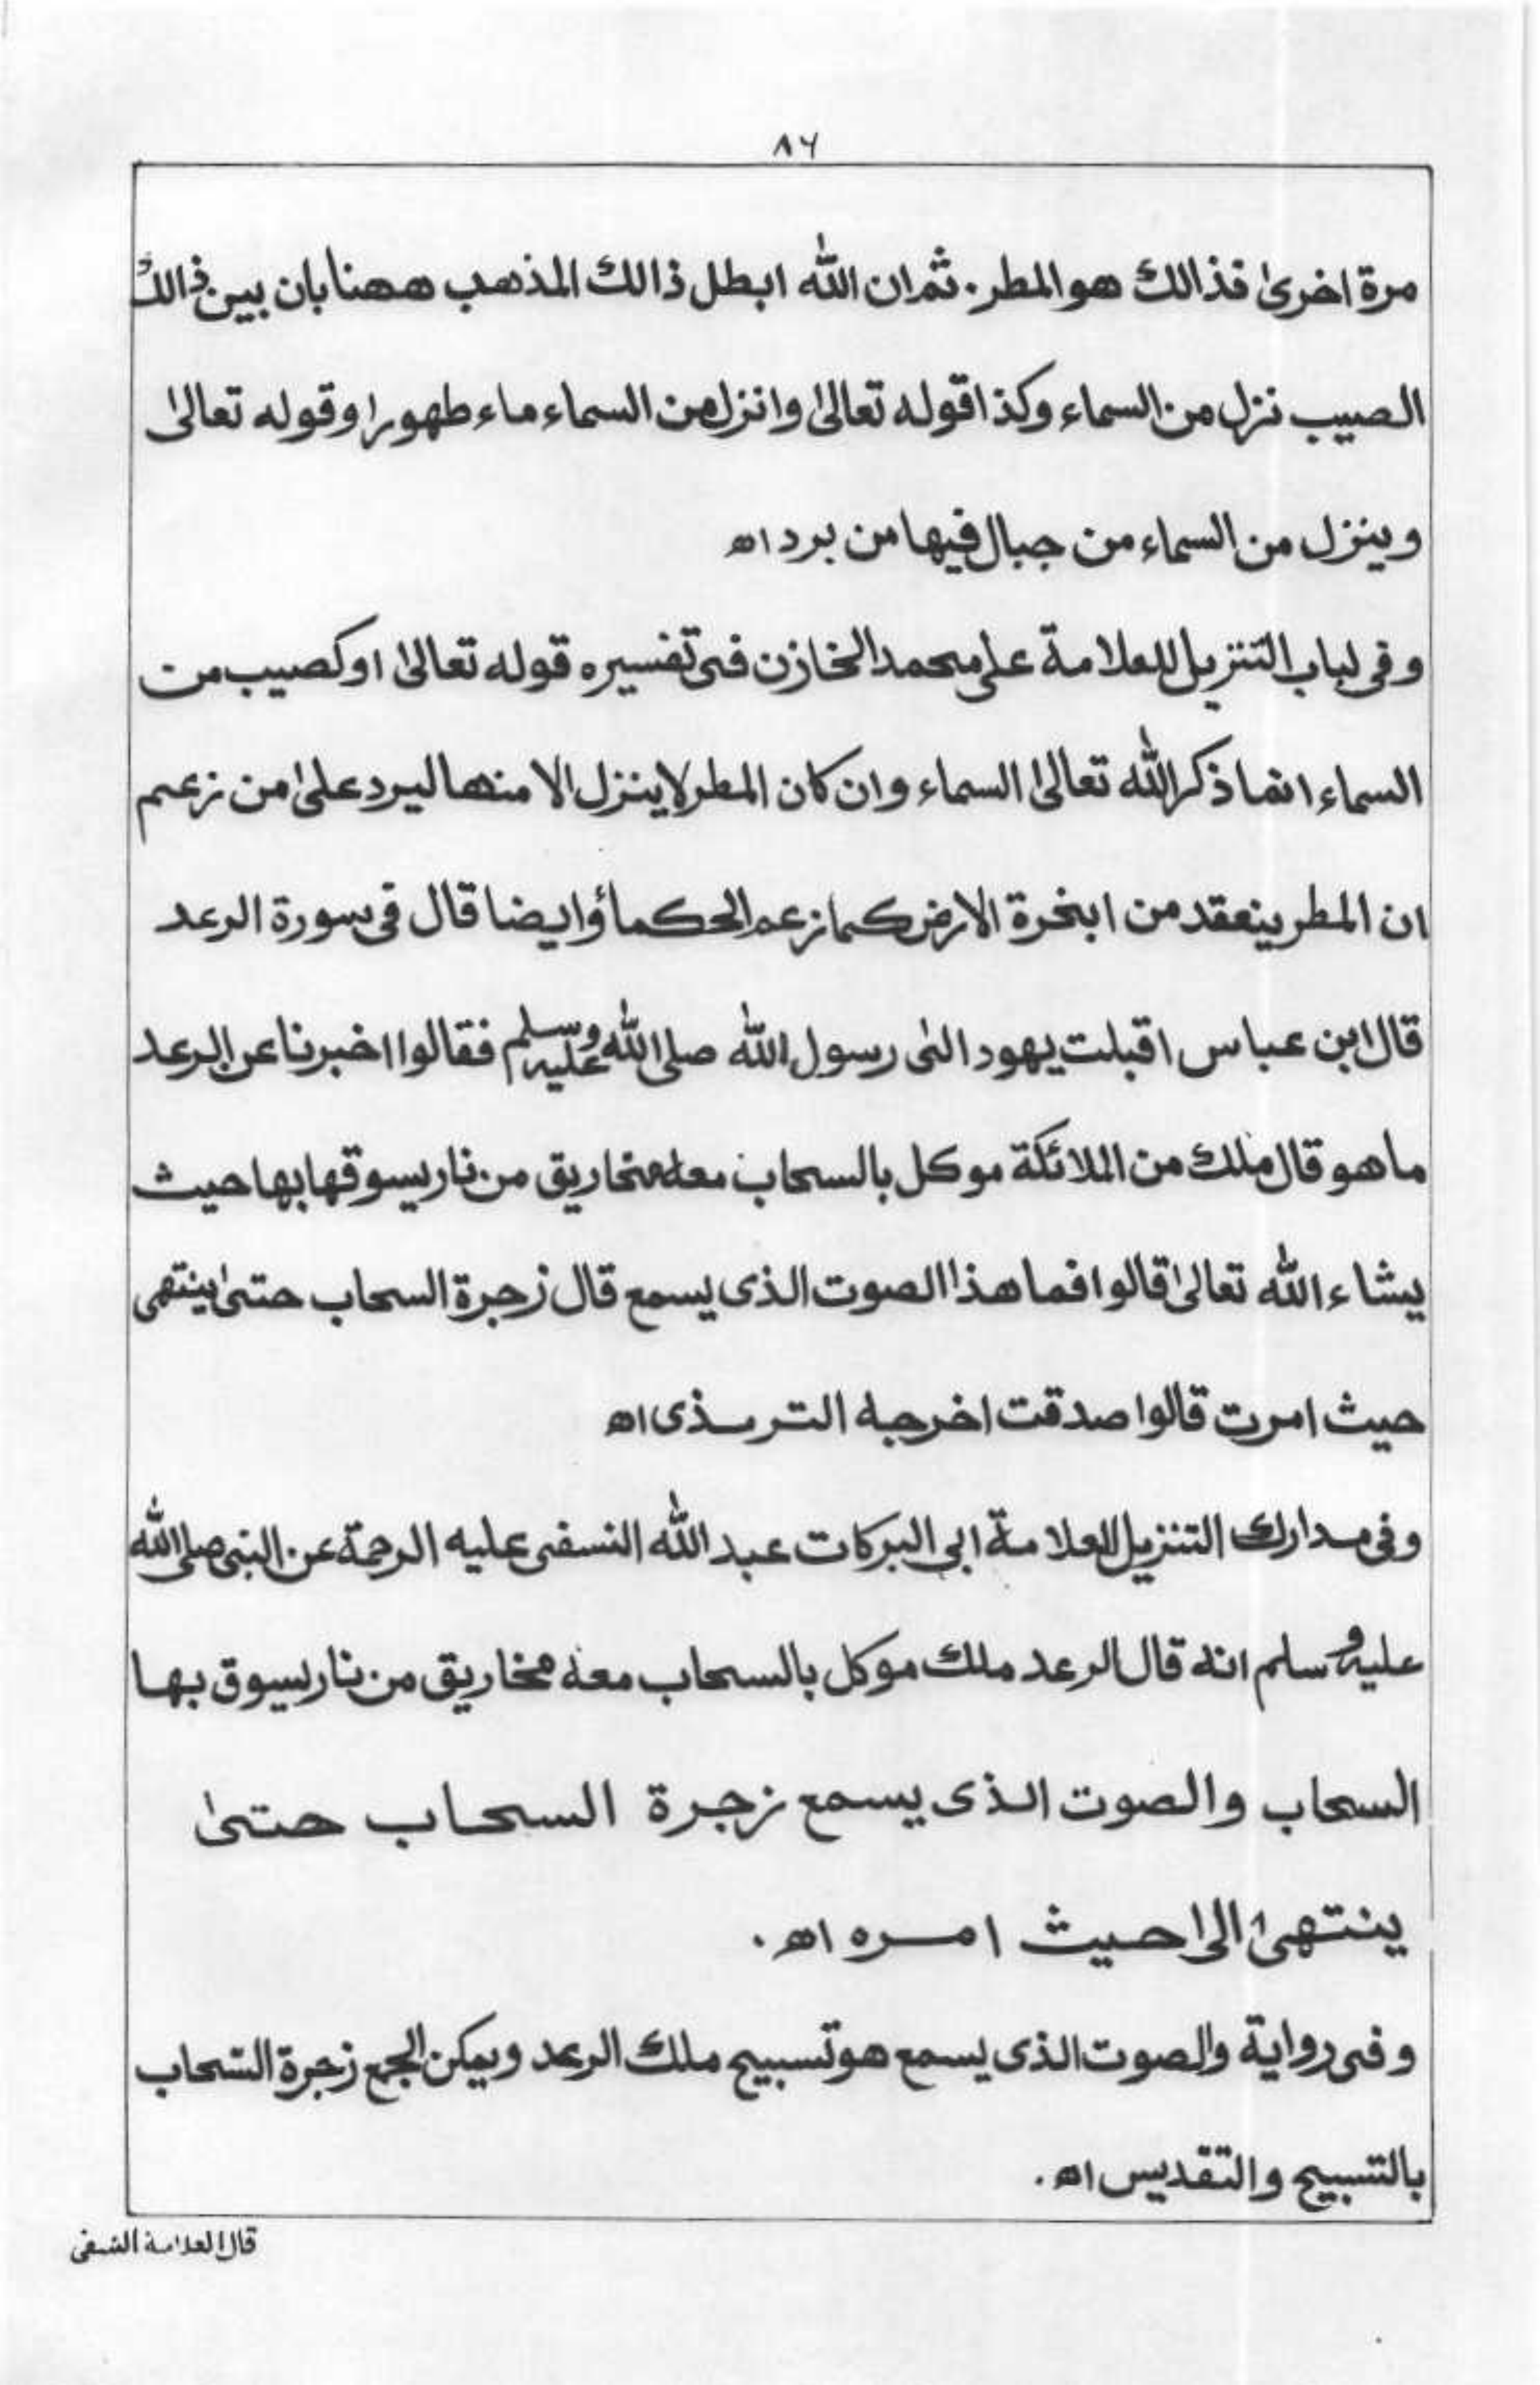 ٨٦
مرة اخرىٰ فذالك هو المطر. ثم ان الله ابطل ذالك المذهب ههنا بان بين ذالك
الصيب نزل من السماء وكذا قوله تعالىٰ وانزل من السماء ماء طهورا وقوله تعالىٰ
وينزل من السماء من جبال فيها من برد اھ
وفى لباب التنزيل للعلامة على محمد الخازن فى تفسيره قوله تعالىٰ او كصيب من
السماء انما ذكر الله تعالىٰ السماء وان كان المطر لا ينزل الا منها ليرد علىٰ من زعم
ان المطر ينعقد من ابخرة الارض كما زعم الحكمأ وايضا قال فى سورة الرعد
قال ابن عباس اقبلت يهود الى رسول الله صلى الله عليه وسلم فقالوا اخبرنا عن الرعد
ما هو قال ملك من الملائكة موكل بالسحاب معه مخاريق من نار يسوقها بها حيث
يشاء الله تعالىٰ قالوا فما هذا الصوت الذى يسمع قال زجرة السحاب حتىٰ ينتهى
حيث امرت قالوا صدقت اخرجه الترمذى اھ
وفى مدارك التنزيل للعلامة ابى البركات عبد الله النسفى عليه الرحمة عن النبى صلى الله
عليه وسلم انه قال الرعد ملك موكل بالسحاب معه مخاريق من نار يسوق بها
السحاب والصوت الذى يسمع زجرة السحاب حتىٰ
ينتهىٰ الىٰ حيث امره اھ.
وفى رواية والصوت الذى يسمع هو تسبيح ملك الرعد ويمكن الجمع زجرة السحاب
بالتسبيح والتقديس اھ.
قال العلامة النسفى